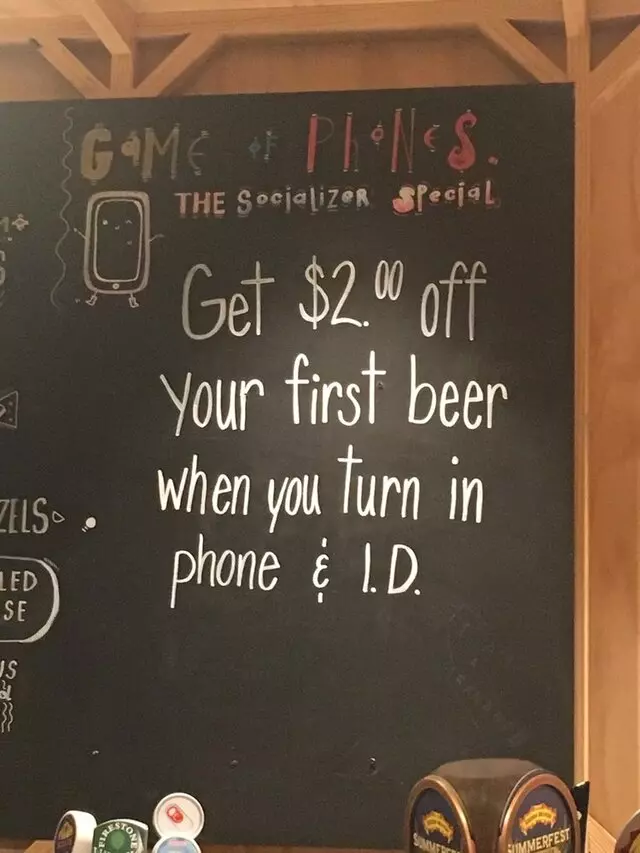 GAME OF PHONES.
THE Socializer Special
Get $2.00 off
your first beer
when you turn in
phone & I.D.
ZELS
LED
SE
US
FIRESTONE
SUMMERFEST
SUMMERFEST